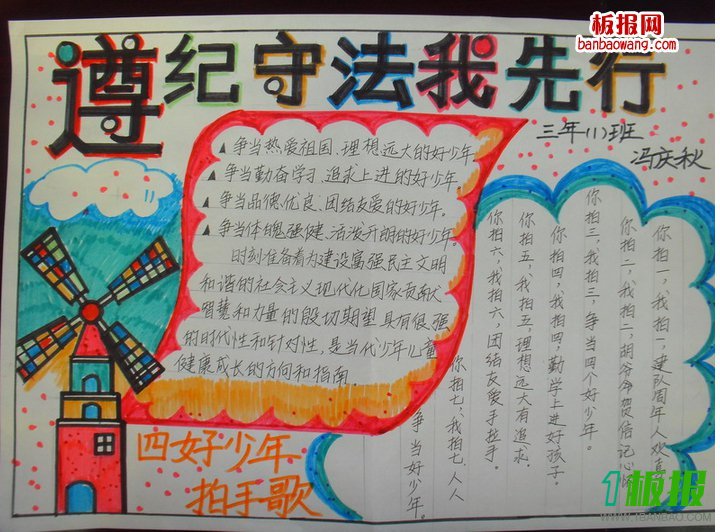 板报网
banbaowang.com
遵纪守法我先行
三年(1)班
冯庆秋
▲争当热爱祖国、理想远大的好少年。
▲争当勤奋学习、追求上进的好少年。
▲争当品德优良、团结友爱的好少年。
▲争当体魄强健、活泼开朗的好少年。
时刻准备着为建设富强民主文明
和谐的社会主义现代化国家贡献
智慧和力量的殷切期望具有很强
的时代性和针对性,是当代少年儿童
健康成长的方向和指南。
你拍一,我拍一,建队周年人欢喜
你拍二,我拍二,胡爷爷贺信记心
你拍三,我拍三,争当四个好少年。
你拍四,我拍四,勤学上进好孩子。
你拍五,我拍五,理想远大有追求。
你拍六,我拍六,团结友爱手拉手。
你拍七,我拍七,人人
争当好少年。
四好少年
拍手歌
1板报
WWW.1BANBAO.COM